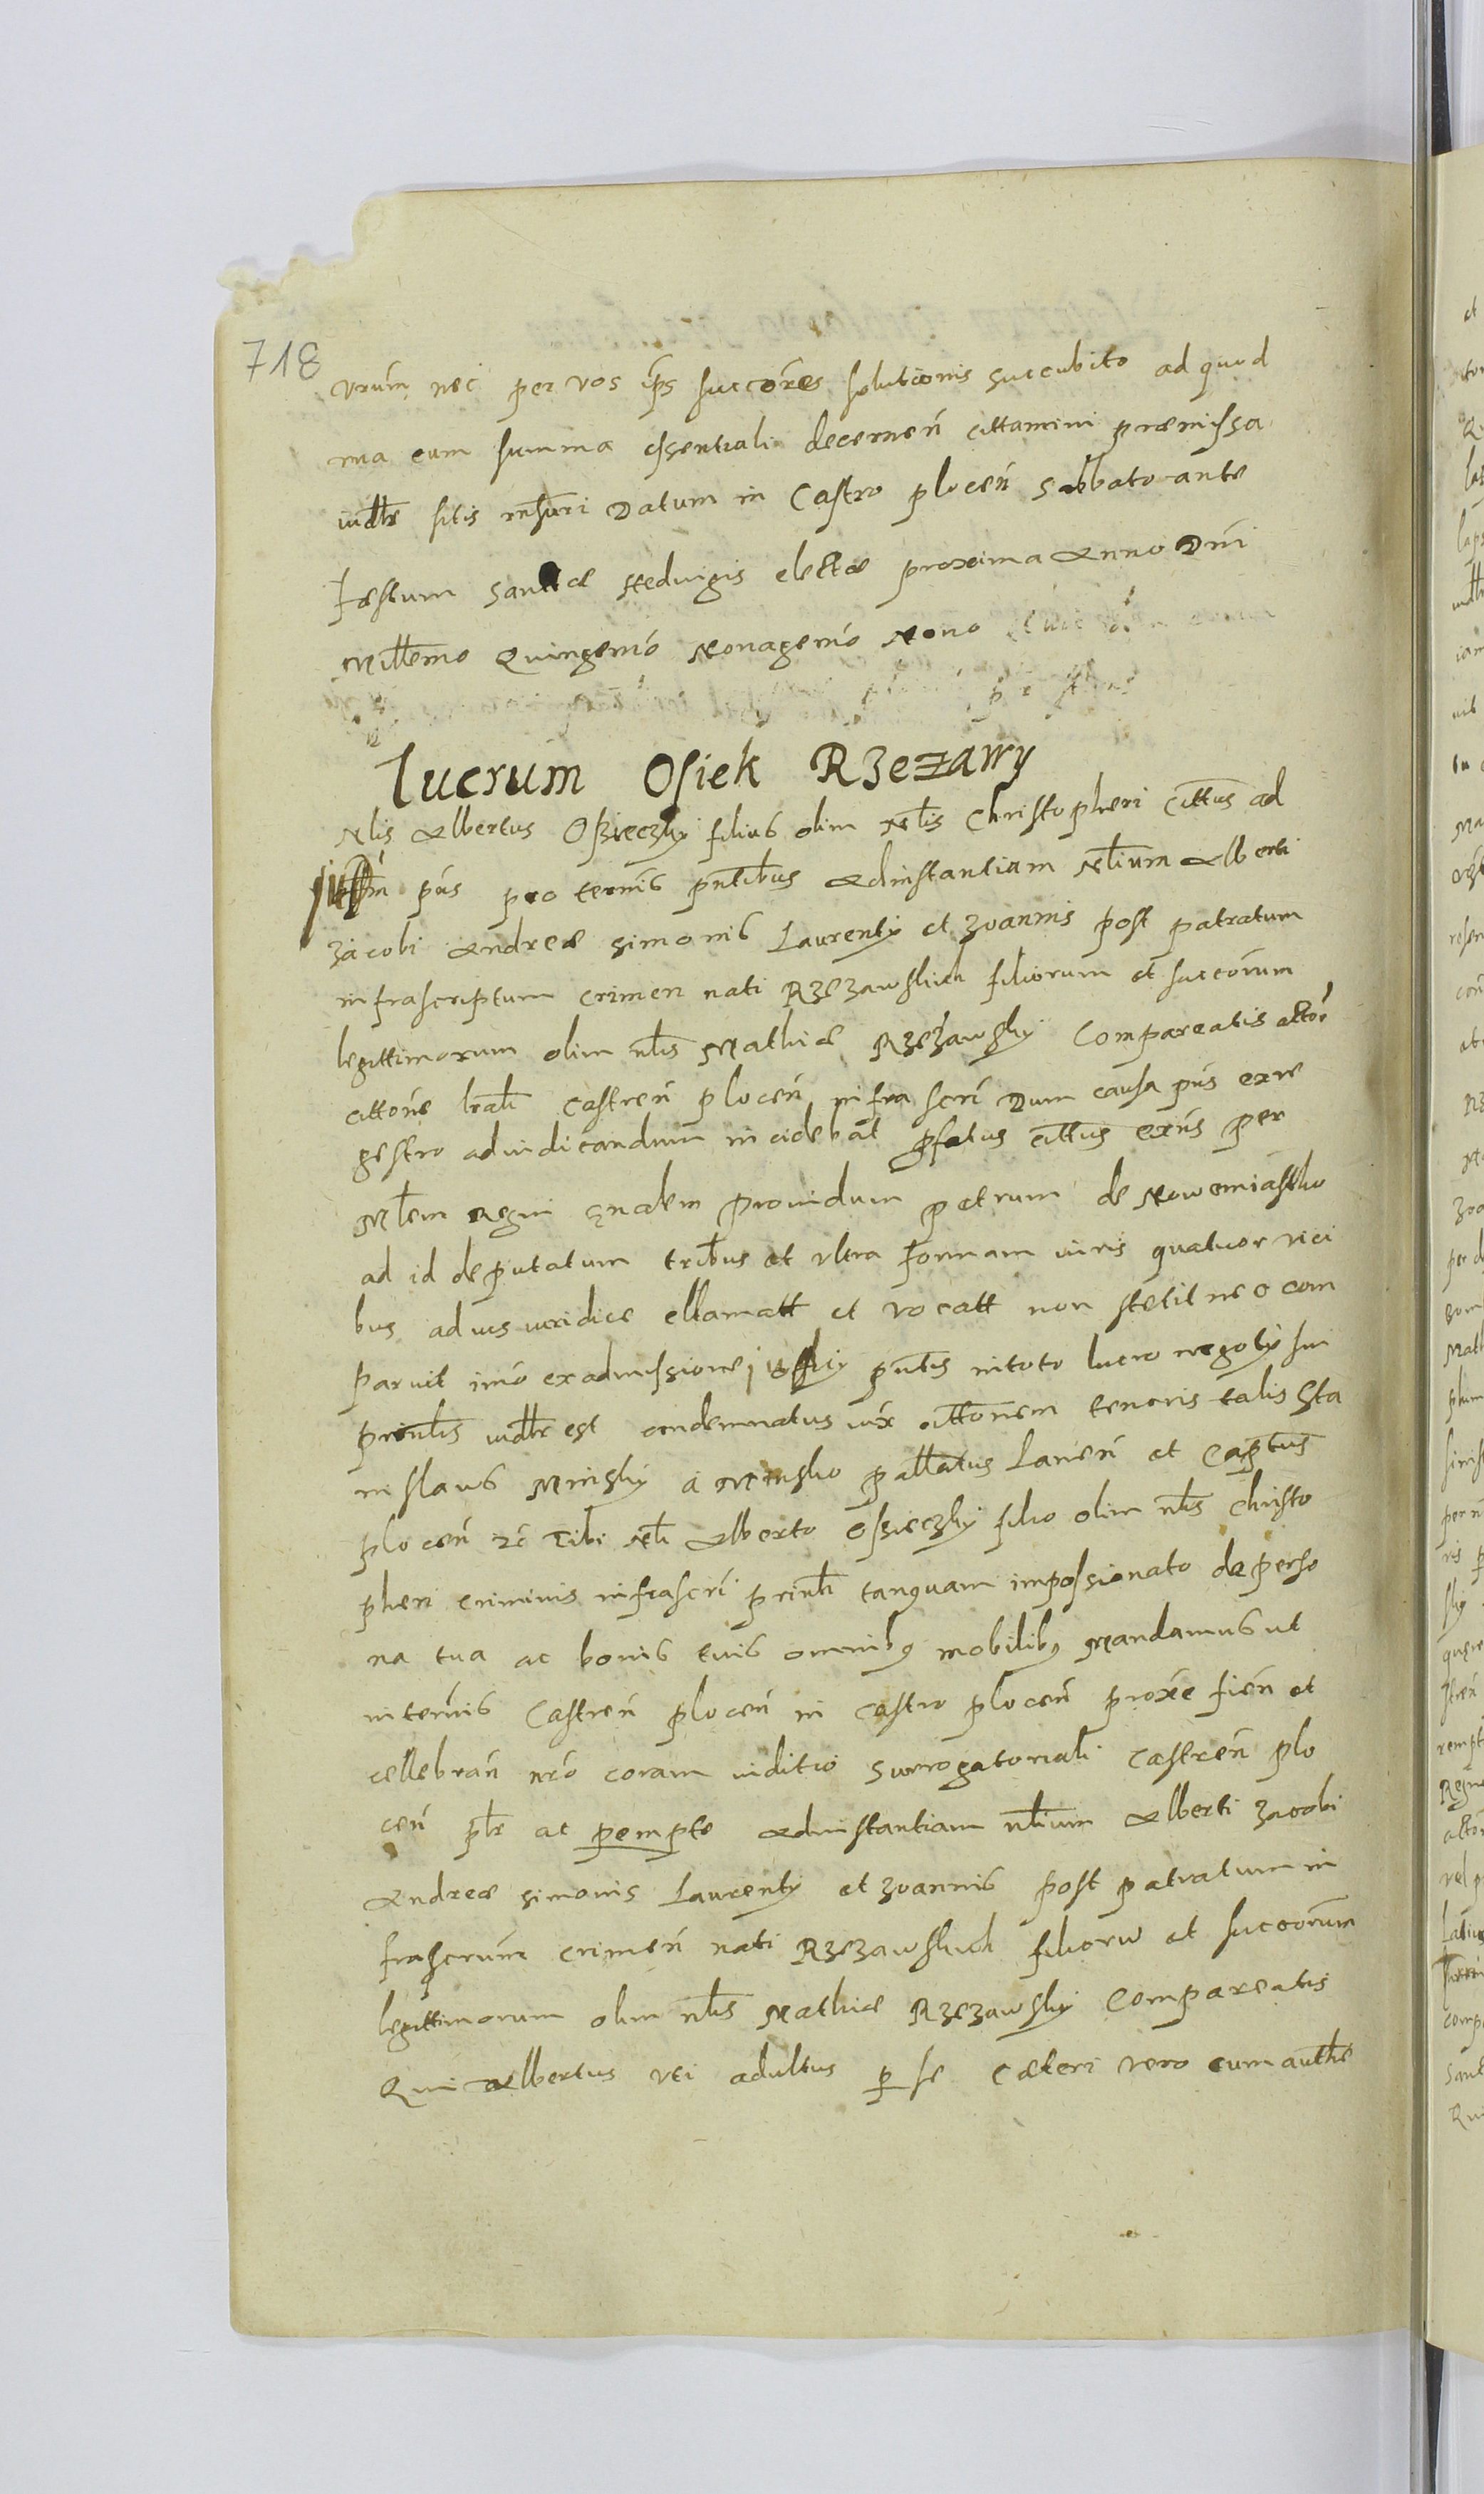 718
vrum nec per vos ips succores solutionis succubito ad quod
ma cum summa essentiali decernen cittamini præmissa
iudtr sitis rnsuri Datum in Castro plocen Sabbato ante
Festum Sanctæ Heduigis electæ proxima Anno Dni
Millemo Quingemo Nonagemo Nono
Lucrum Osiek Rzezawy
Nlis Albertus Osieczky filius olim Nlis Christopheri Cittus ad
pns pro termis pntibus Adinstantiam Nlium Alberti
Jacobi Andreæ Simonis Laurenty et Joannis post patratum
infrascriptum crimen nati Rzezawskich filiorum et succorum
legittimorum olim nlis Mathiæ Rzezawsky Compareatis actor
cittone lrali Castren plocen infra scri Dum causa pns ex re
gestro adiudicandum incidebat pfatus cittus exns per
Mlem Regni gnalem prouidum petrum de Nowemiastko
ad id deputatum tribus et vltra formam iuris quatuor vici
bus ad ius iuridice cllamatt et vocatt non stetit neo com
paruit imo ex admissione iudicy pntis in toto lucro negoty sui
prinlis iudtr est condemnatus iux cittonem tenoris talis Sta
nislaus Minsky a Minsko pallatus Lancn et Captus
plocen zc Tibi Nli Alberto Ossieczky filio olim nlis Christo
pheri criminis infrascri prinli tanquam impossionato de perso
na tua ac bonis tuis omnibus mobilibus Mandamus ut
in termis Castren plocen in Castro plocen proxe fien et
cellebran nro coram iuditio Surrogatoriali Castren plo
cen pltr ac pempte Adinstantiam nlium Alberti Jacobi
Andreæ Simonis Laurenty et Joannis post patratum in
frascrum crimen nati Rzezawskich filioru et succorum
legittimorum olim nlis Mathiæ Rzezawsky Compareatis
Qui Albertus vti adultus p se Cæteri vero cum authe